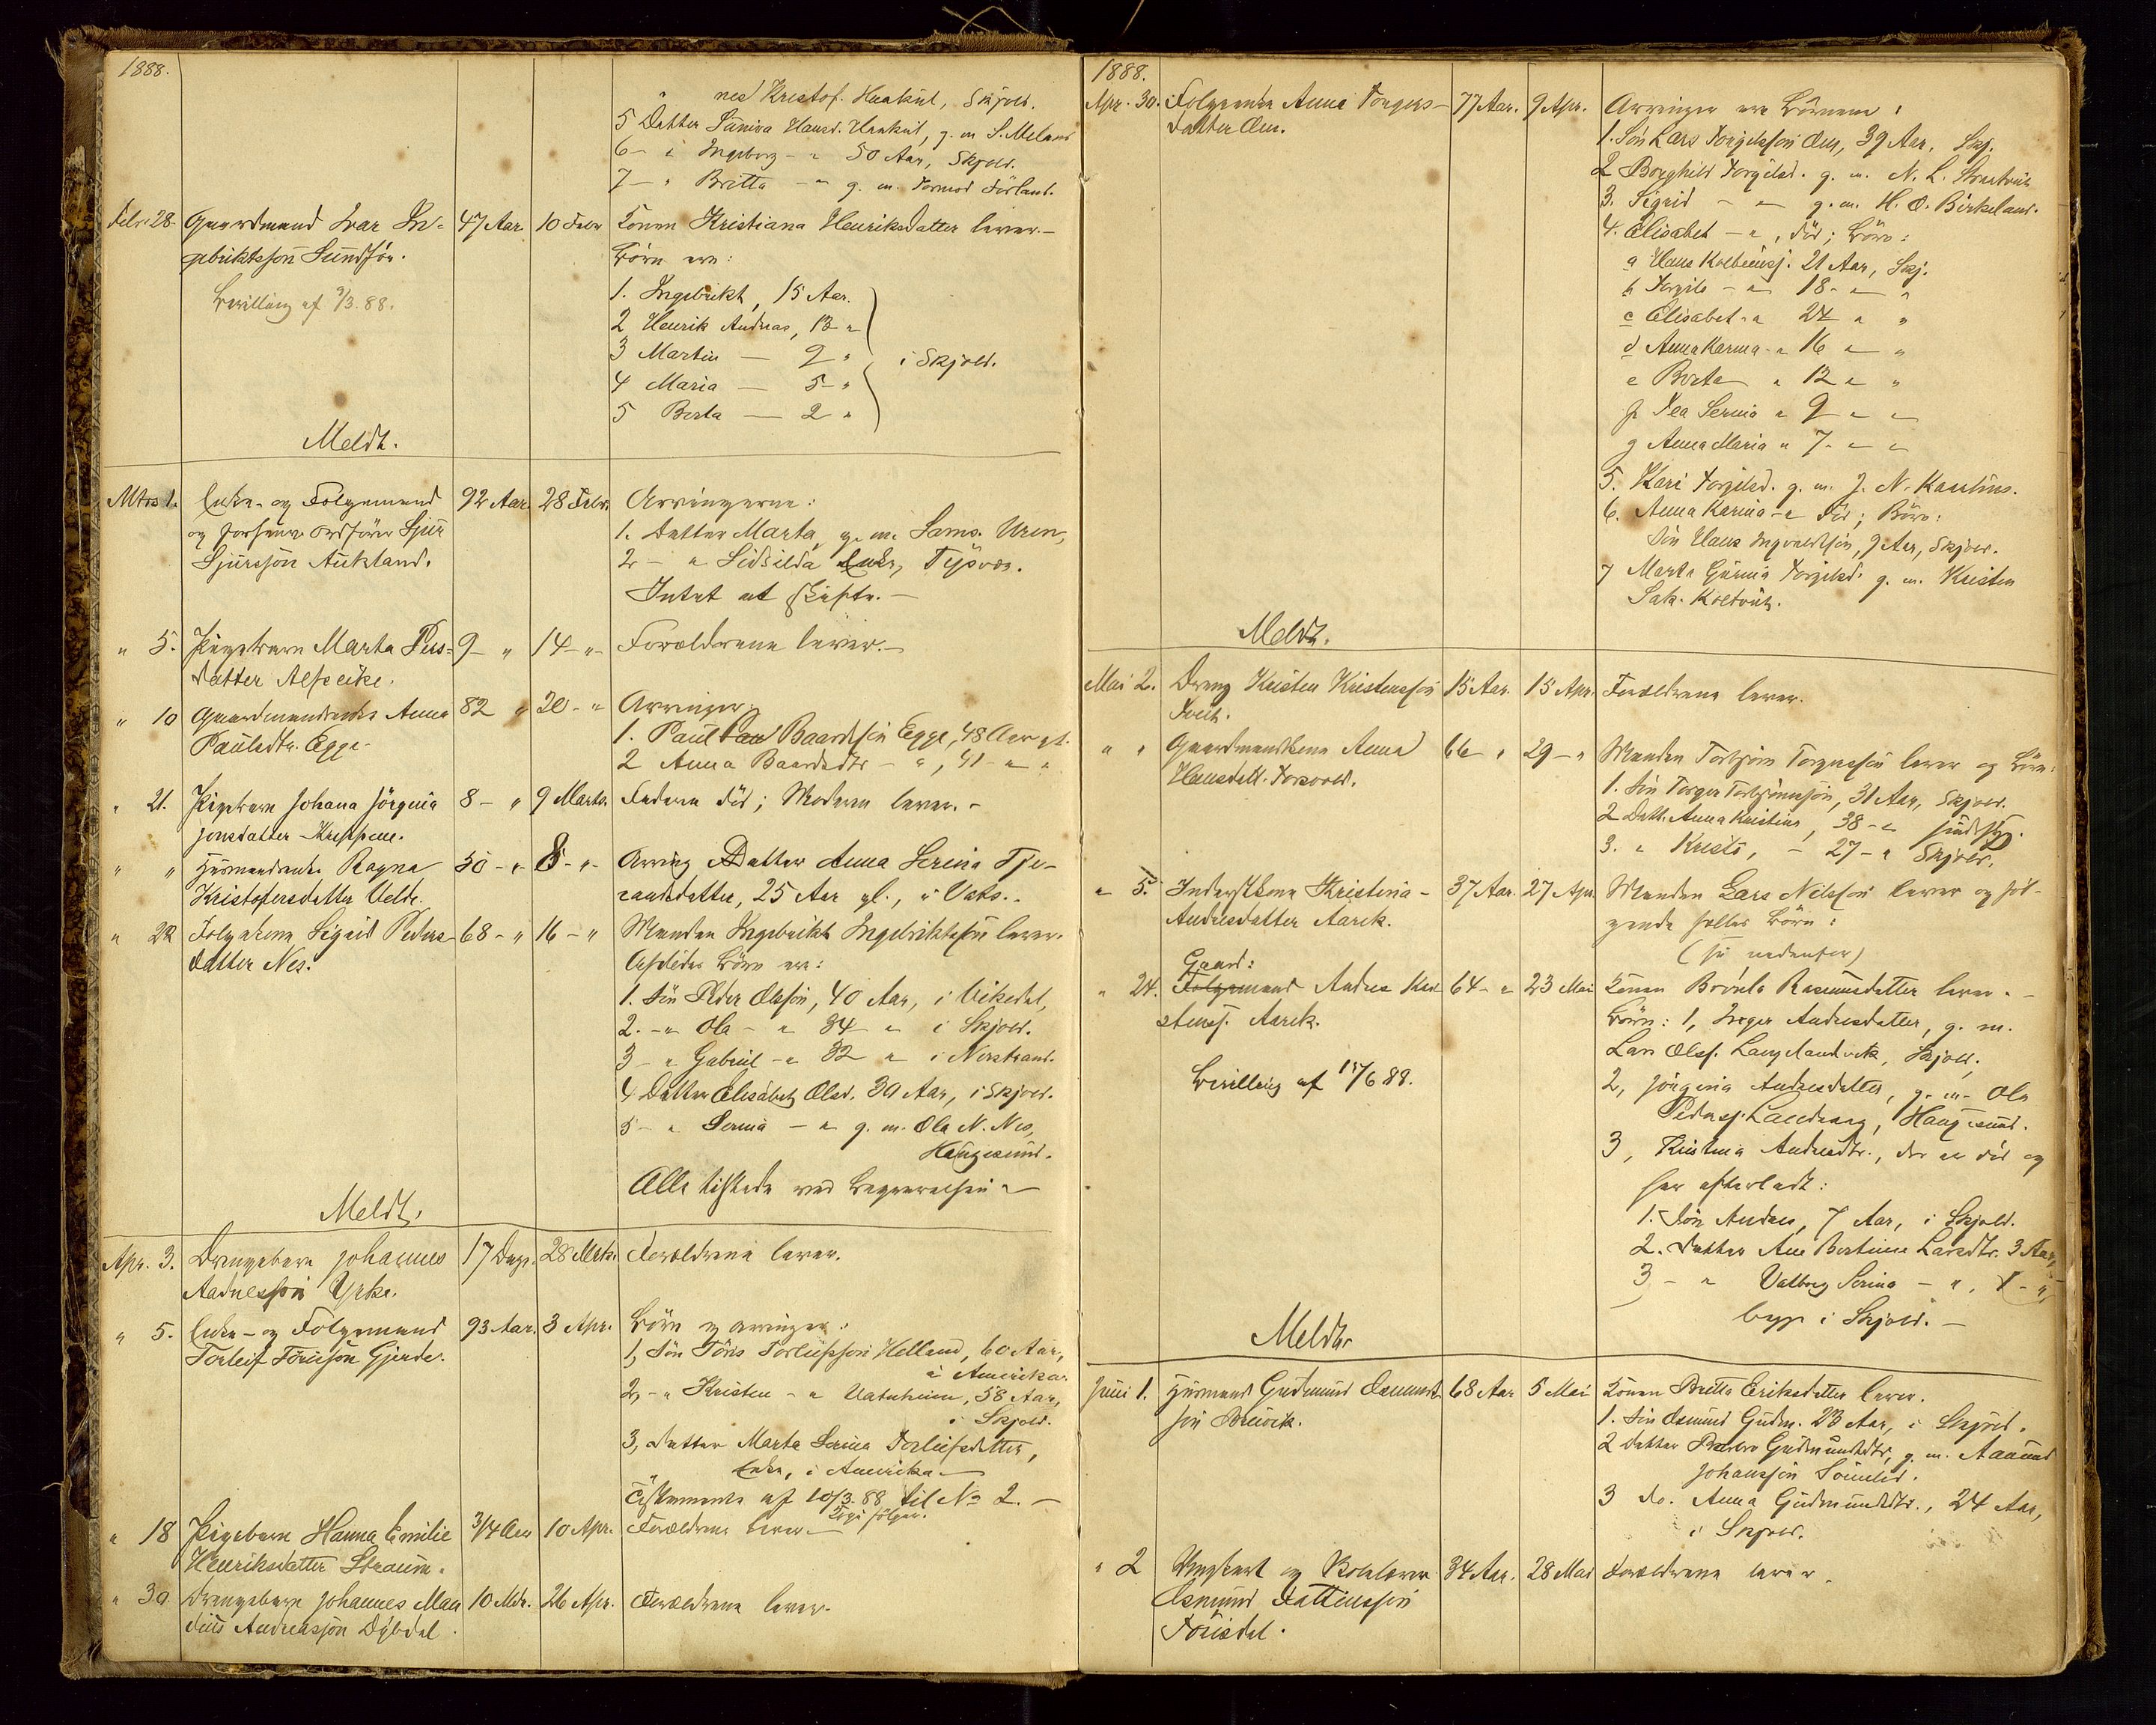 1888.
ned Kristof. Haakul, Skjold.
5 Datter Saniva Hansd. Haakul, g. m S. Meland
6 - " Ingeborg - " 50 Aar, Skjold.
7 - " Britta - " g. m. Tormod Førland.
Febr. 28. Gaardmand Ivar In- 47 Aar 10 Febr Konen Kristiana Henriksdatter lever. -
gebriktsson Sundfør. Børn ere:
Bevilling af 9/3. 88.
1. Ingebrikt, 15 Aar.
2 Henrik Andreas, 13 "
3 Martin — 9 " i Skjold.
4 Maria — 5 "
5 Berta — 2 "
Meldt.
Mrs 1. Enke- og Følgemand 92 Aar 28 Febr. Arvingerne:
og forhenv. Ordfører Sjur 1. Datter Marta, g. m. Sams. Uren,
Sjursson Aukland. 2 - " Sidsilda Enke, Tysvær.
Intet at skifte. —
" 5. Pigebarn Marta 9 - " 14 - " Forældrene lever. —
datter Alfseike.
" 10 Gaardmandsenke Anna 82 " 20 - " Arvinger:
Paulsdtr. Egge. 1. Paul Baardsson Egge, 48 Aar gl.
2 Anna Baardsdtr - ", 41 - " "
" 21. Pigebarn Johana Jørgina 8 - " 9 Marts. Faderen død; Moderen lever. -
Jonsdatter
" " Husmandsenke Ragna 50 - " 8 - " Arving Datter Anna Serina Tje-
Kristofersdatter Velde. randsdatter, 25 Aar gl., i Vats. -
" 22 Følgekone Sigrid Peders- 68 - " 16 - " Manden Ingebrikt Ingebriktsson lever.
datter Nes. Afdødes Børn ere:
1. Søn Peder Olsson, 40 Aar, i Vikedal,
2. - " Ola - " 34 - " i Skjold.
3 - " Gabriel - " 32 " i Nerstrand.
4 Datter Elisabet Olsd. 39 Aar, i Skjold.
5 - " Serina - " g. m. Ola N. Nes,
Haugesund.
Alle tilstede ved Begravelsen —
Meldt.
Apr. 3. Drengebarn Johannes 17 Dage. 28 Mrts. Forældrene lever.
Aadnesson Yrke.
" 5. Enke- og Følgemand 93 Aar. 3 Apr. Børn og Arvinger:
Torleif Tørisson Gjerde. 1, Søn Tøris Torleifsson Helland, 60 Aar,
i Amerika.
2, - " Kristen - " Vatnheim, 58 Aar,
i Skjold.
3, Datter Marta Serina Torleifsdatter,
Enke, i Amerika —
Testamente af 10/3. 88 til No 2. —
Kopi følger.
" 18 Pigebarn Hanna Emilie 3/4 Aar 10 Apr. Forældrene lever —
Henriksdatter Straum.
" 30. Drengebarn Johannes Man 10 Mdr. 26 Apr. Forældrene lever.
dius Andreasson Dybdal.
1888.
Apr. 30. Følgeenke Anna Torgers- 77 Aar. 9 Apr. Arvinger ere Børnene:
datter Øen. 1. Søn Lars Torgilsson Øen, 39 Aar, Skj.
2 Borghild Torgilsd. g. m. N. L.
3. Sigrid - " g. m. H. O. Birkeland.
4. Elisabet - ", død; Børn:
a Hans Kolbeinsj. 21 Aar, Skj.
b Torgils - " 18 - " "
c Elisabet - " 24 " "
d Anna Karina - " 16 " "
e Berta " 12 " "
f Tea Serina " 9 - "
g Anna Maria " 7 - " "
5. Kari Torgilsd. g. m. J. N.
6. Anna Karina - " død; Børn:
Søn Hans Ingvaldsson, 9 Aar, Skjold.
7 Marta Gurina Torgilsd. g. m. Kristen
Sak.
Meldt.
Mai 2. Dreng Kristen Kristensson 15 Aar. 15 Apr. Forældrene lever.
Tveit.
" " Gaardmandskone Anna 66 " 29 - " Manden Torbjørn Torgersson lever og Børn:
Hansdatt. 1. Søn Torger Torbjørnsson, 31 Aar, Skjold.
2 Datt. Anna Kristina, 38 - "
3. " Kristi, - 27 - " Skjold.
" 5. Inderstkone Kristina - 37 Aar. 27 Apr. Manden Lars Nilsson lever og føl-
Andresdatter Aarek. gende fælles Børn:
(se nedenfor)
Gaard:
" 24. Følgemand Andres Kri 64 - " 23 Mai Konen Brønla Rasmusdatter lever. -
stensj. Aarek. Børn: 1, Inger Andresdatter, g. m.
Lars Olsf. Langelandvik, Skjold,
Bevilling af 15/6 88. 2, Jørgina Andresdatter, g. m. Ola
Pedersj. Haugesund.
3, Kristina Andresdtr., der er død og
har efterladt:
1. Søn Andres, 7 Aar, i Skjold.
2. Datter Ane Bertine Larsdtr. 3 Aar,
3 - " Valborg Serina - ", 1 - ",
begge i Skjold. —
Meldt.
Juni 1. Husmand Gudmund Osmunds 68 Aar 5 Mai Konen Britta Eriksdatter lever.
søn Brevik. 1. Søn Osmund Gudm. 23 Aar, i Skjold.
2 Datter Gudmundsdtr, g. m. Aanund
Johansson
3 do. Anna Gudmundsdtr., 24 Aar,
i Skjold.
" 2 Ungkarl og 34 Aar. 28 Mai Forældrene lever.
Osmund
Førisdal.